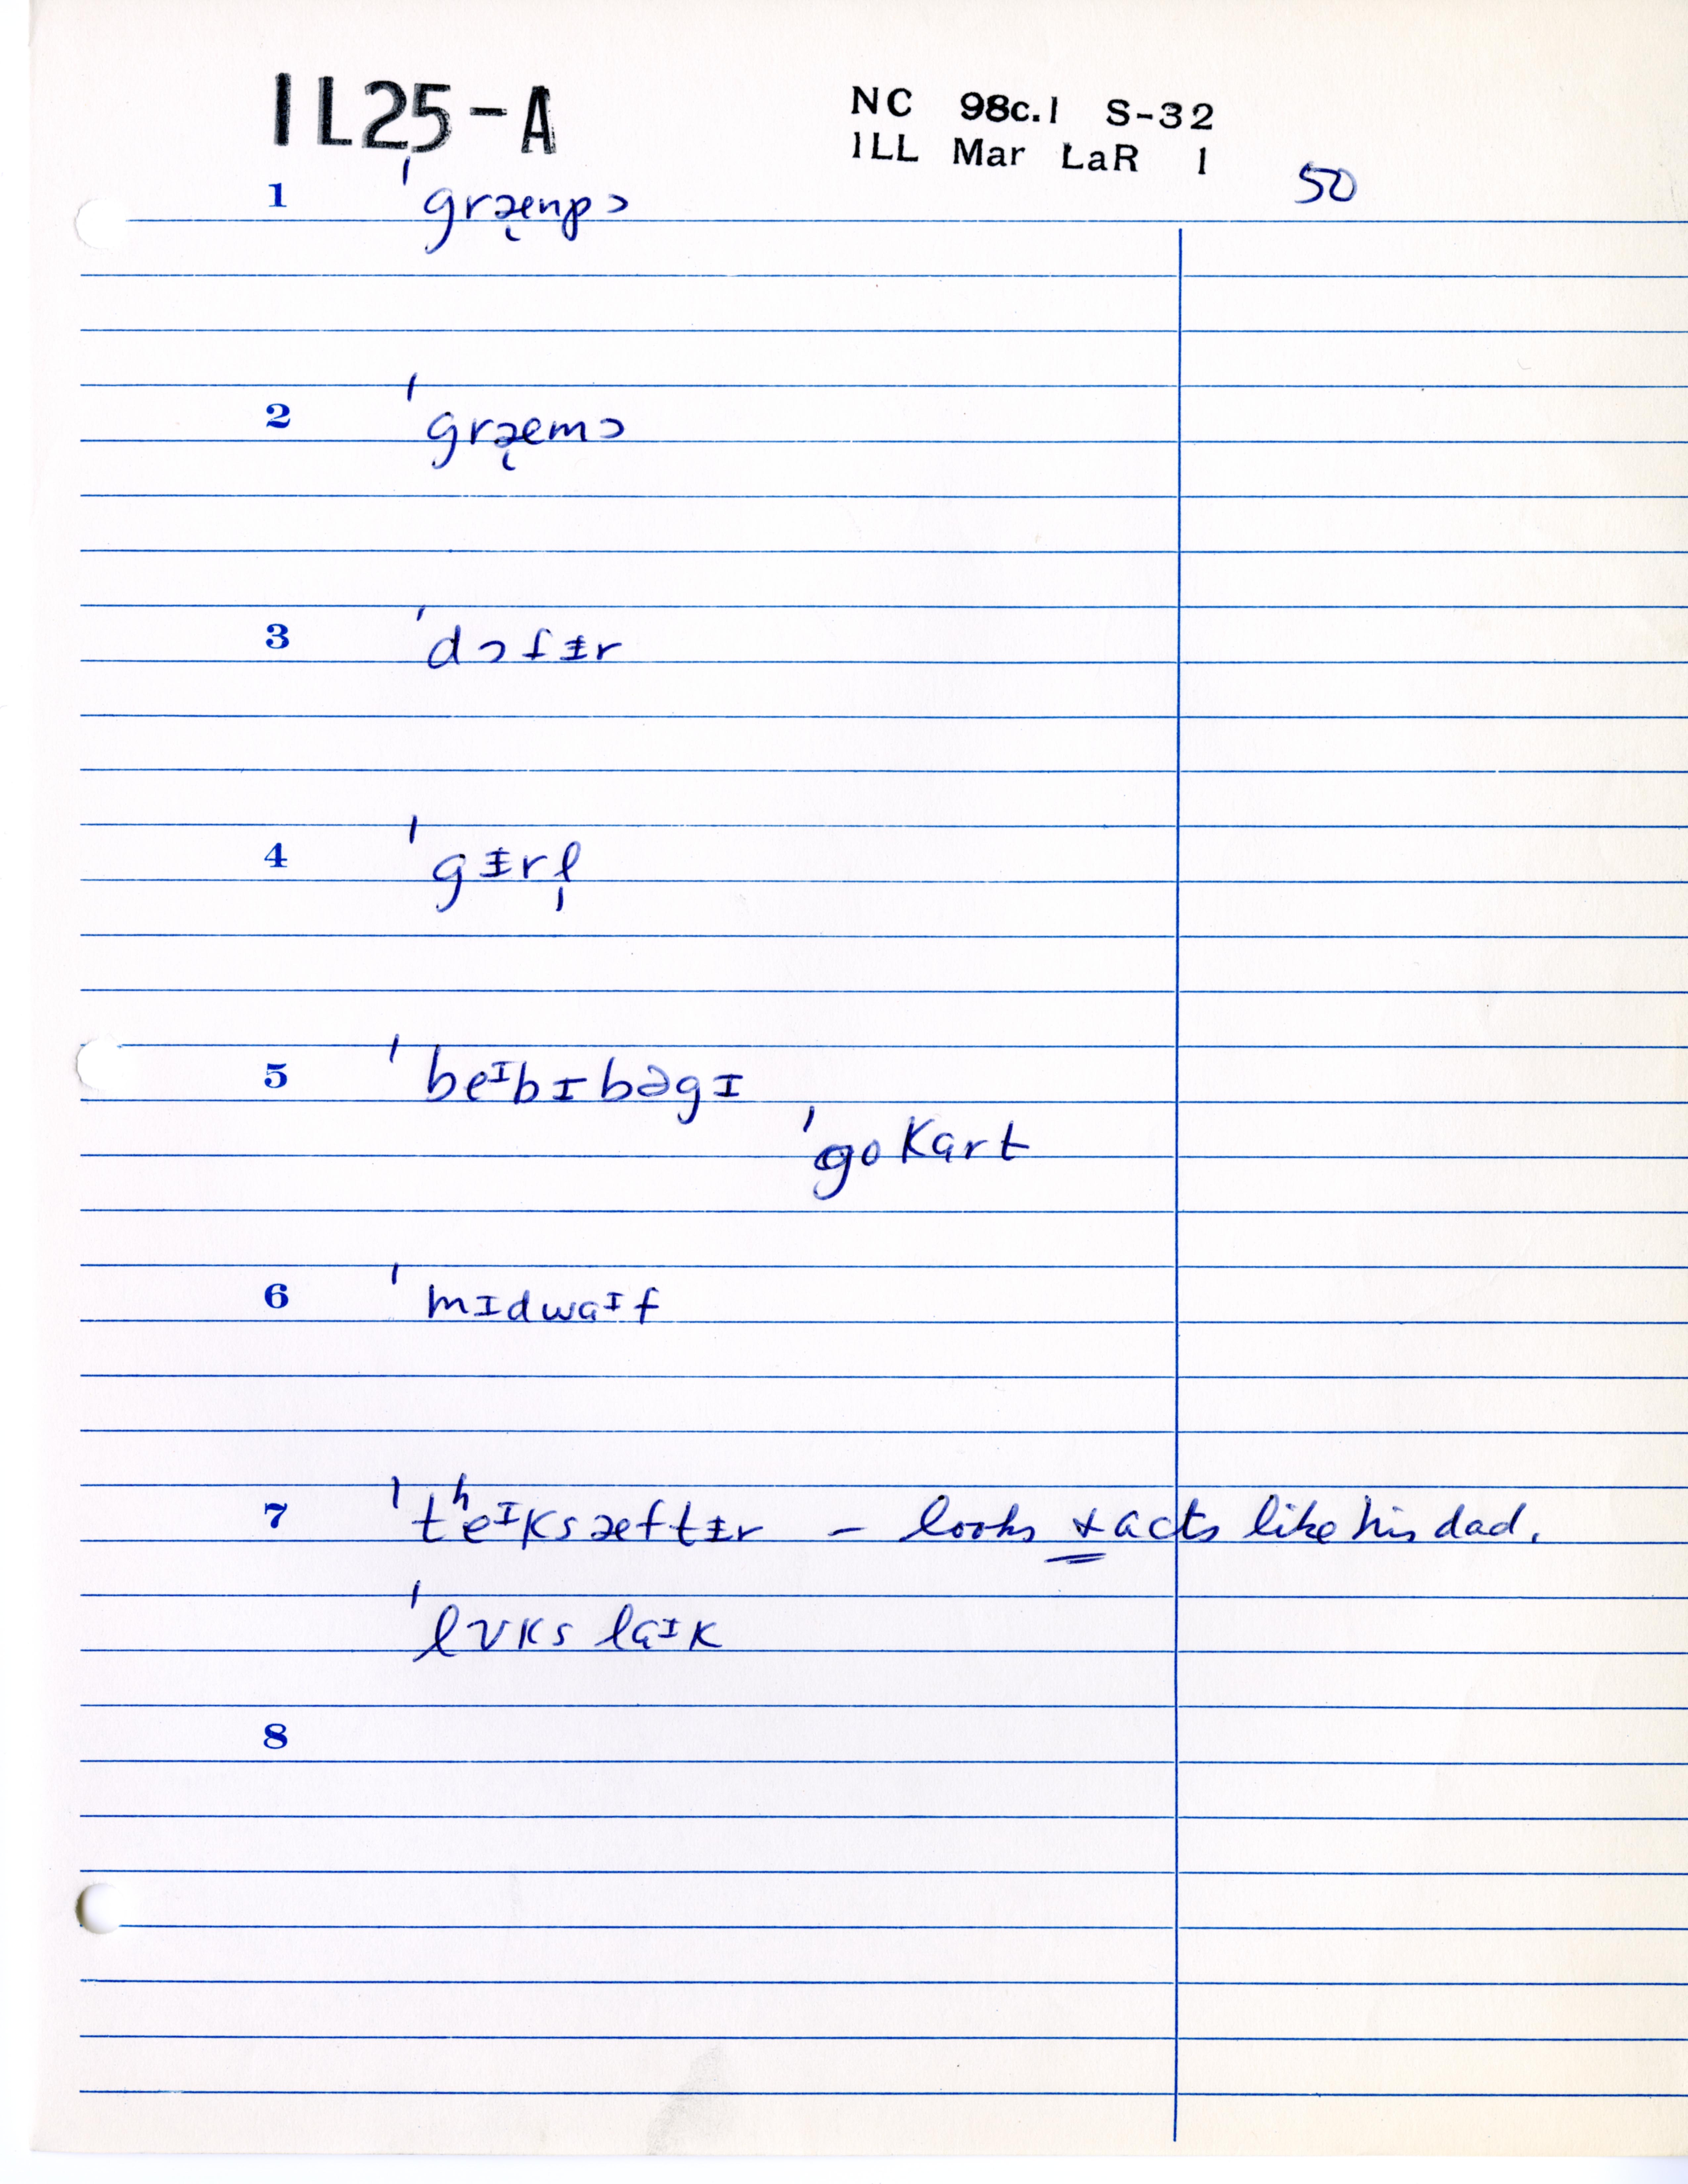 IL25-A
NC 98c.1 S-32
ILL Mar LaR 1
50
1 ˈgræ̨npɔ
2 ˈgræ̨mɔ
3 ˈdɔfᵻr
4 ˈgᵻrl̩
5 ˈbeᶦbɪbəgɪ
ˈgokart
6 ˈmɪdwaᶦf
7 ˈtʰeᶦksæftᵻr – looks & acts like his dad.
ˈlʊks laᶦk
8